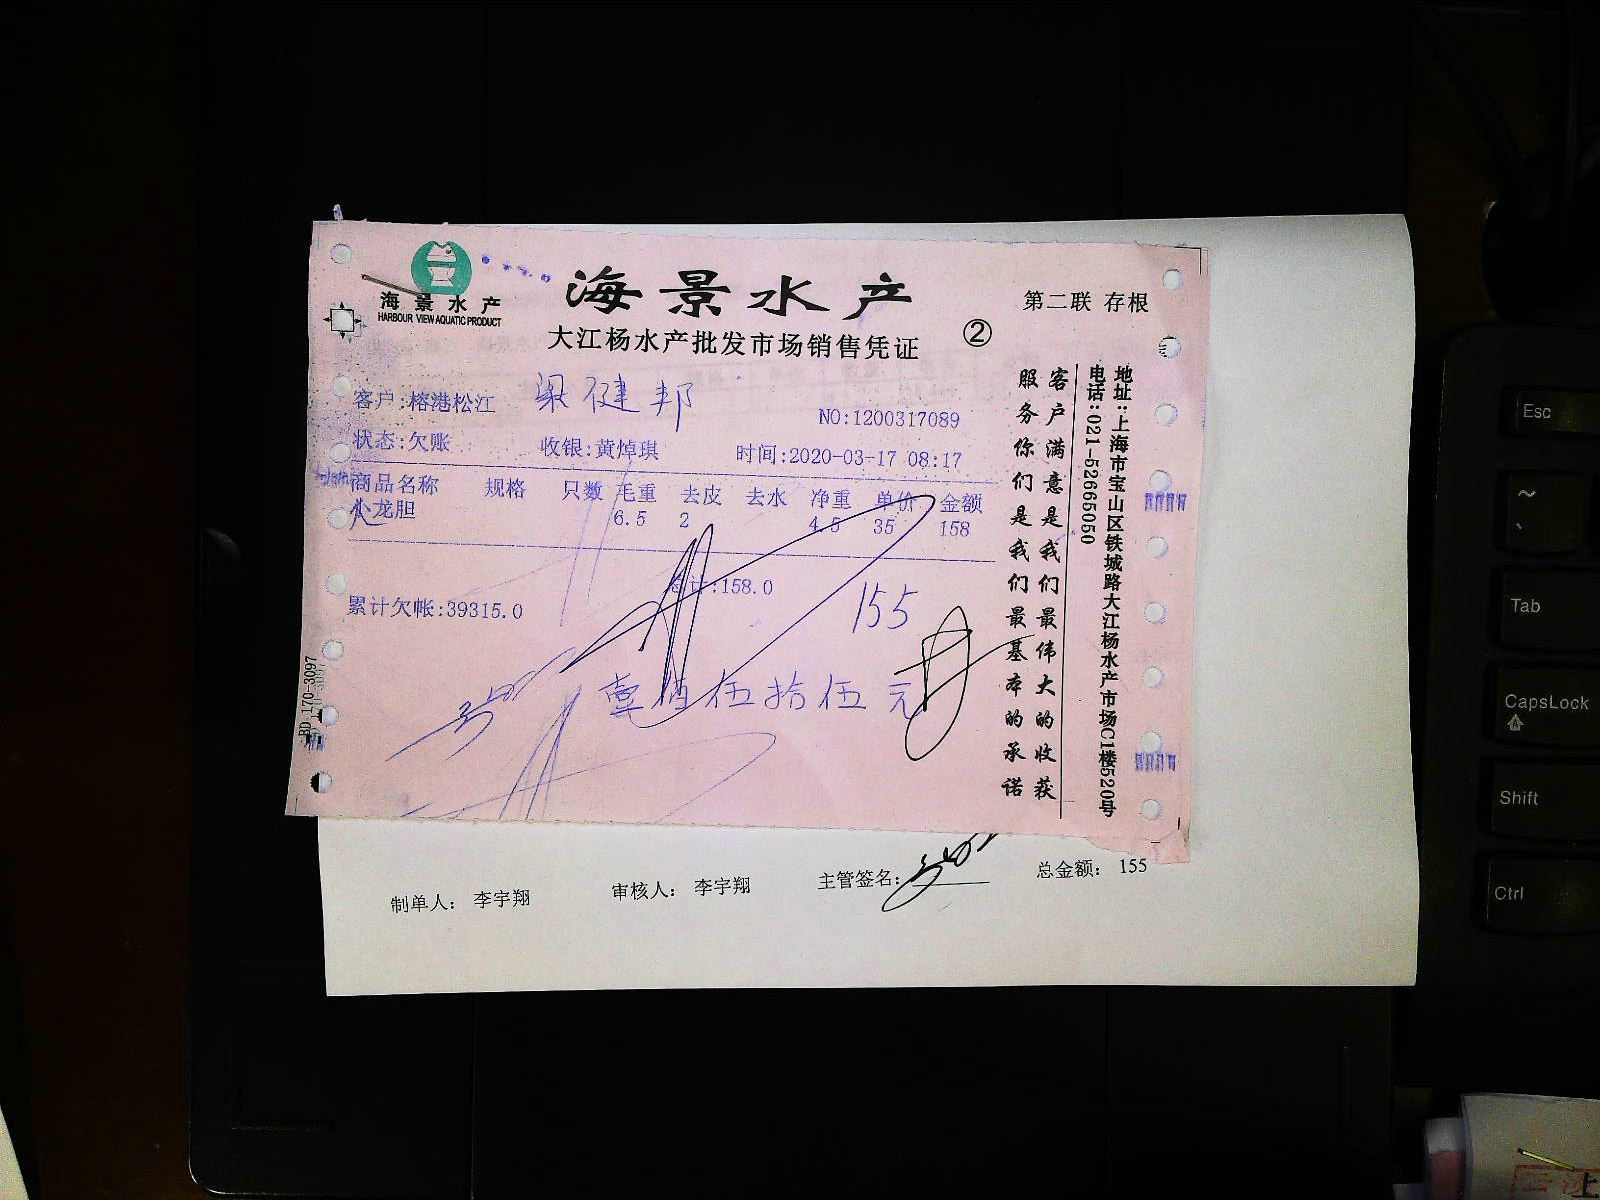 海景水产
HARBOUR VIEW AQUATIC PRODUCT
海景水产
大江杨水产批发市场销售凭证
②
第二联 存根
客户:榕港松江 梁健邦
NO:1200317089
状态:欠账 收银:黄焯琪 时间:2020-03-17 08:17
商品名称 规格 只数 毛重 去皮 去水 净重 单价 金额
小龙胆 6.5 2 4.5 35 158
总计:158.0
累计欠帐:39315.0
155
壹佰伍拾伍元
客户满意是我们最伟大的收获
服务你们是我们最基本的承诺
地址:上海市宝山区铁城路大江杨水产市场C1楼520号
电话:021-52665050
BD 170-3097
制单人: 李宇翔 审核人: 李宇翔 主管签名: 总金额: 155
Esc
~
Tab
CapsLock
Shift
Ctrl